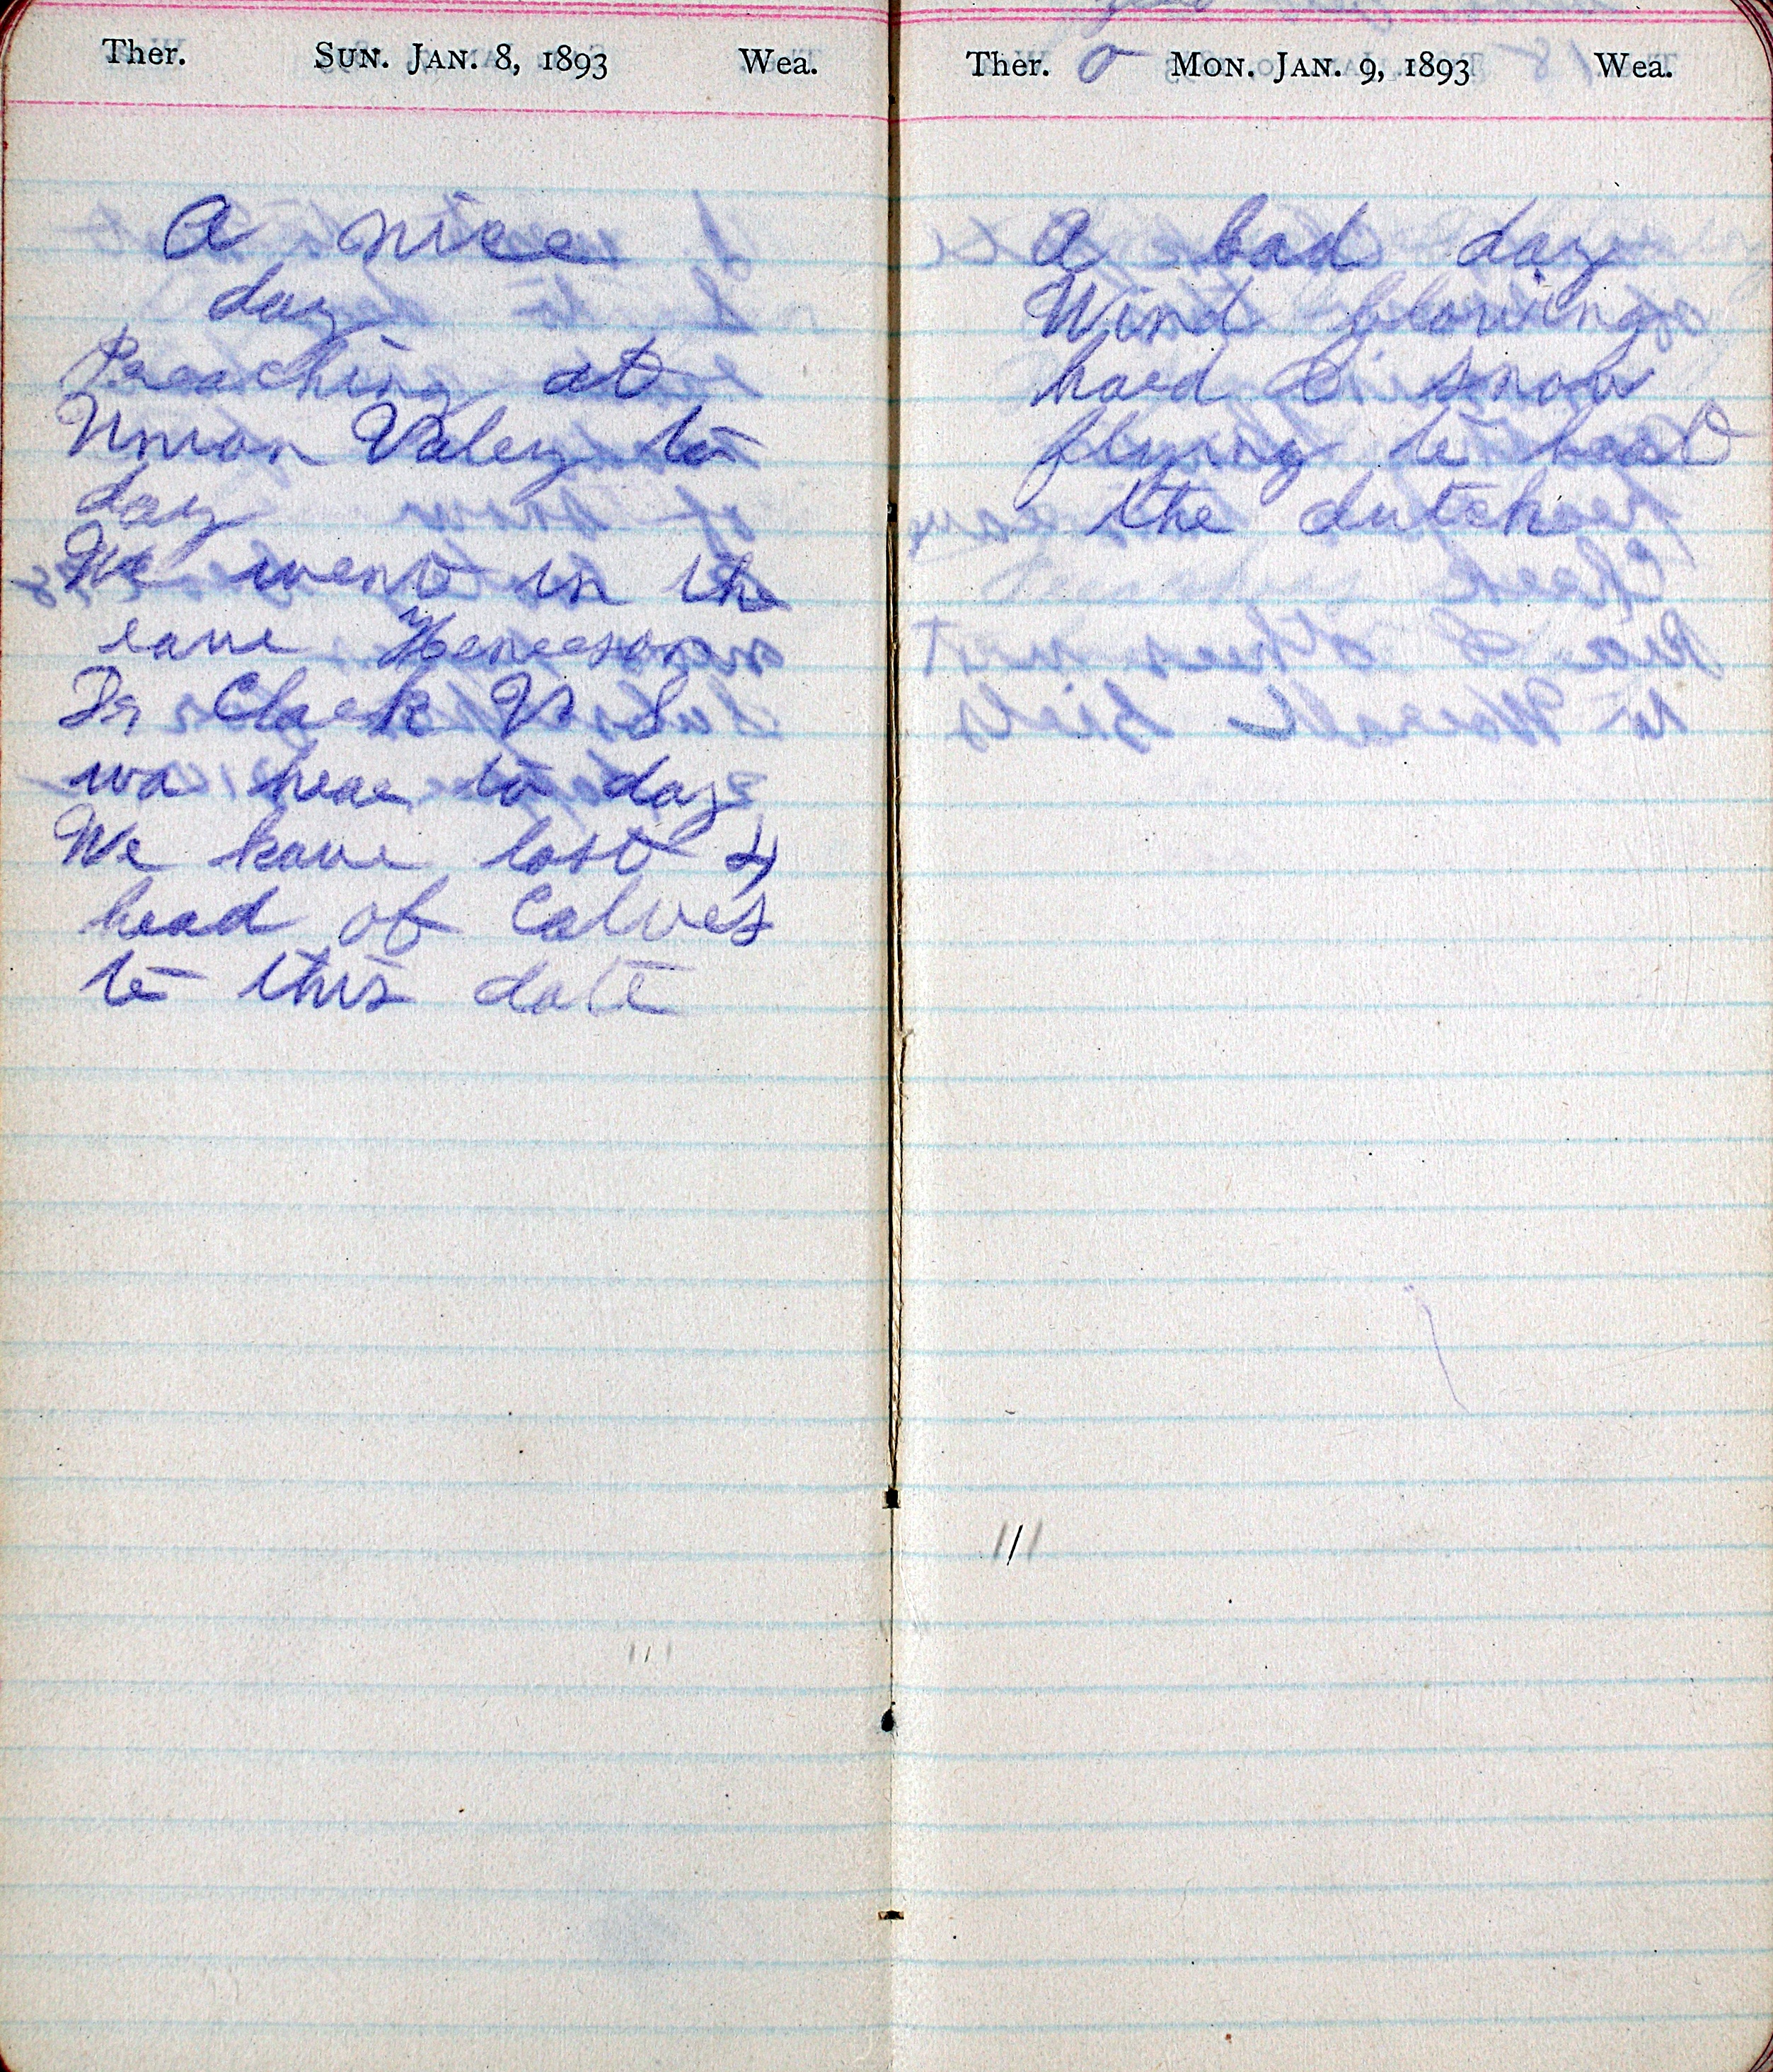 Ther. Sun. Jan. 8, 1893 Wea.
A nice
day
Preaching at
Union Valey to
day
We went in the
eave
Dr Clark V S
wa hear to day
We have lost 4
head of Calves
to this date
Ther. 0 Mon. Jan. 9, 1893 Wea.
A bad day
Wind blowing
hard & snow
flying to beat
the dutch